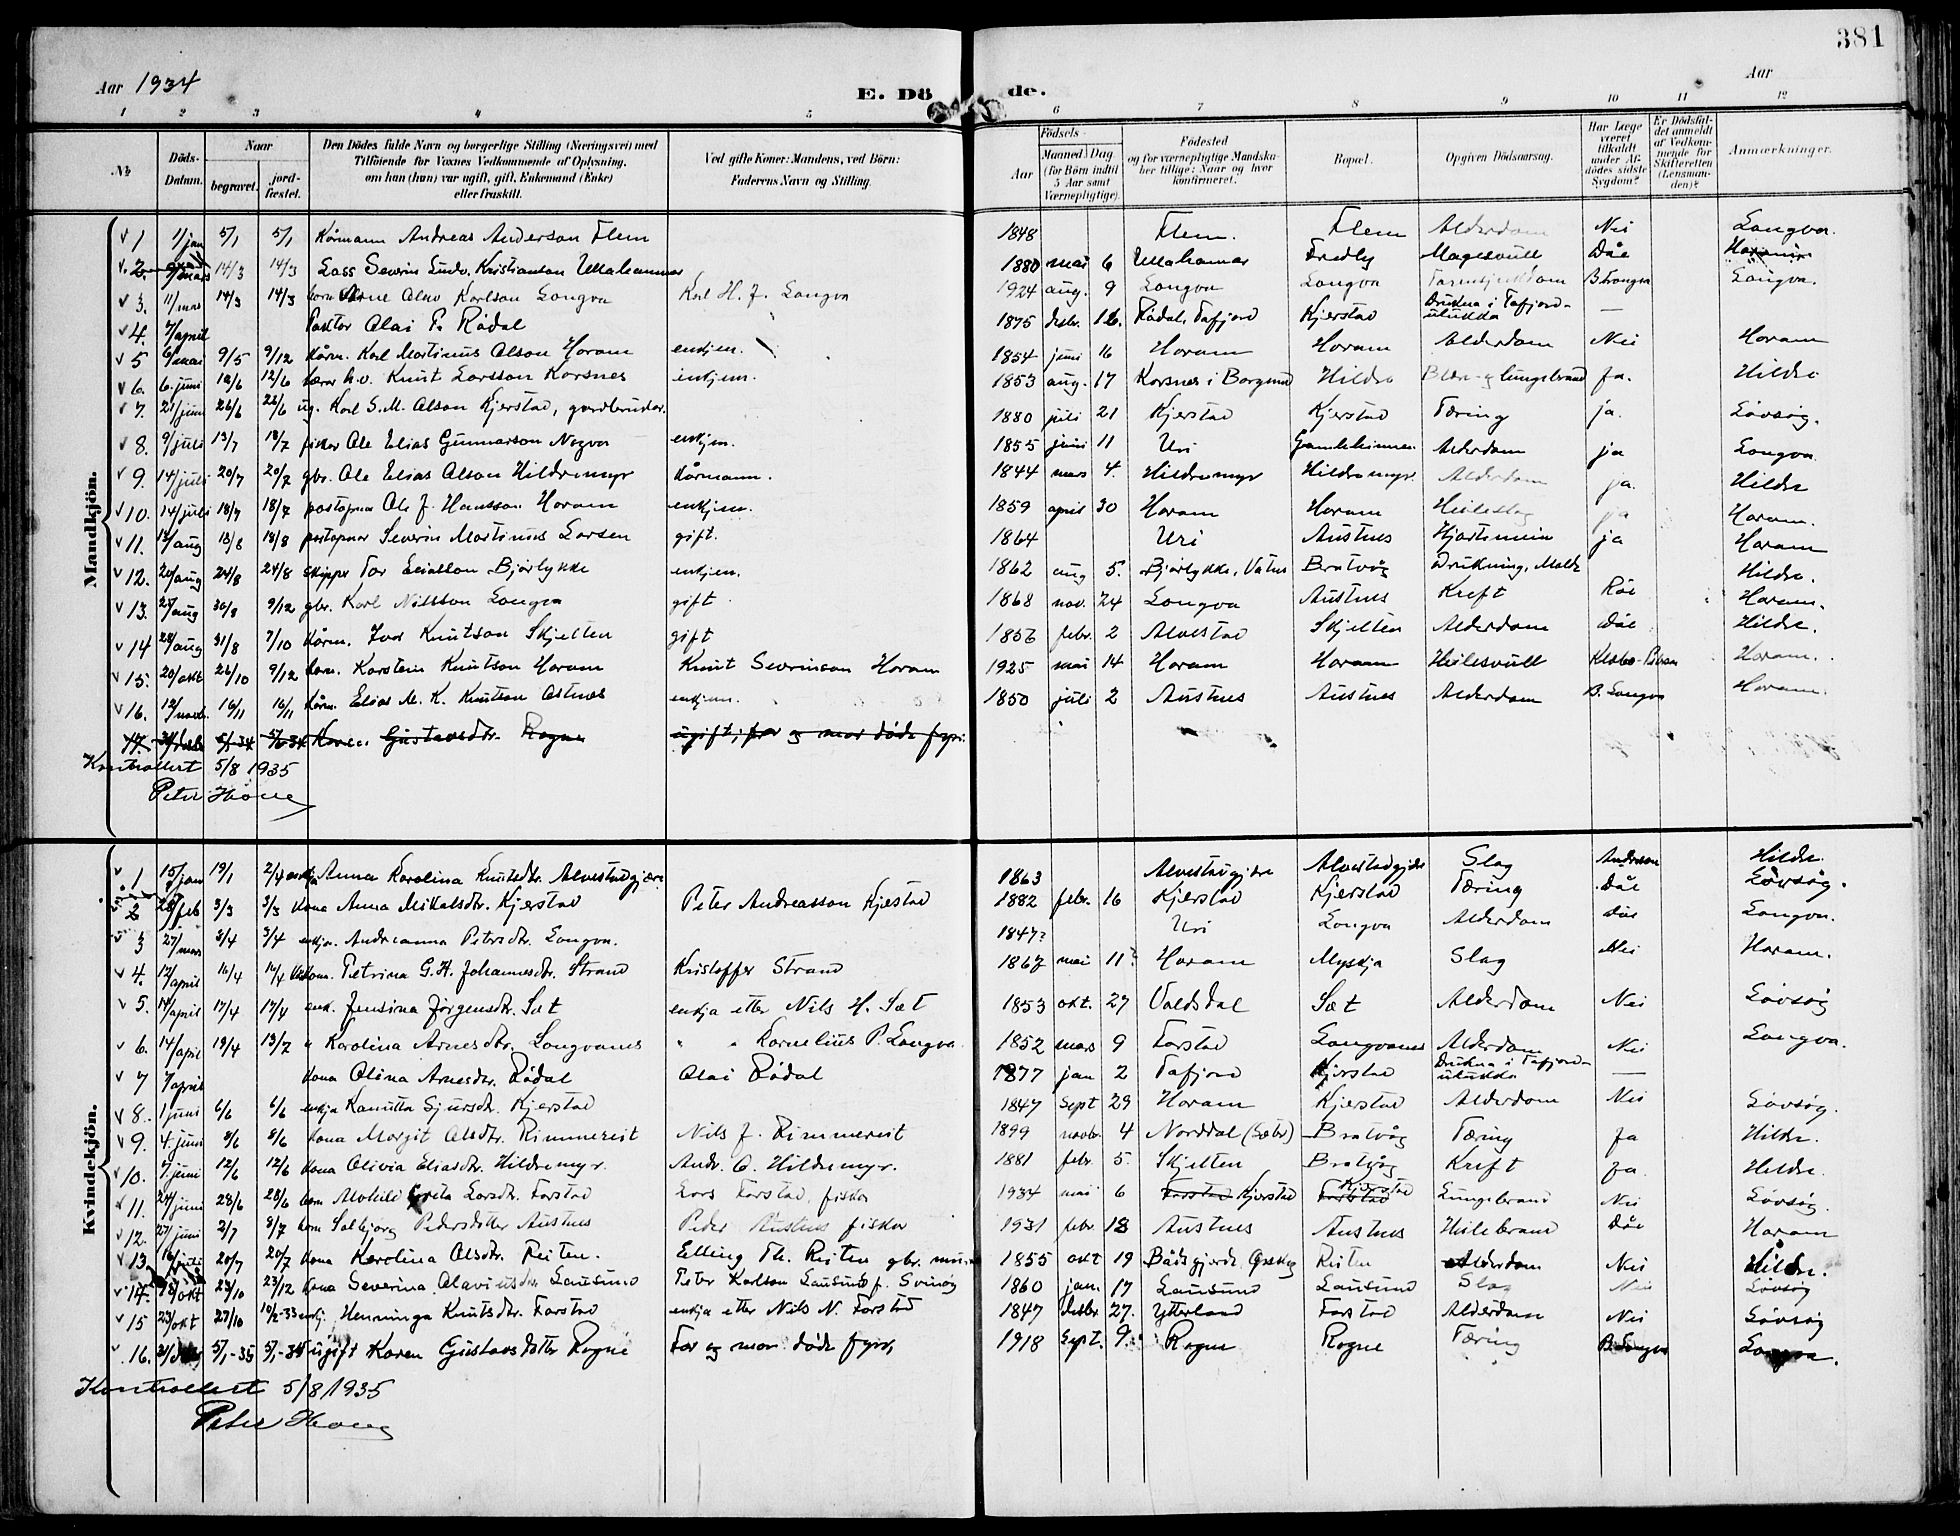 381
Aar 1934
E. Dö
de.
Aar
1 2 3 4 5 6 7 8 9 10 11 12
№
Döds-Datum.
Naar
begravet.
jord-fæstet.
Den Dödes fulde Navn og borgerlige Stilling (Næringsvei) med
Tilföiende for Voxnes Vedkommende af Oplysning,
om han (hun) var ugift, gift, Enkemand (Enke)
eller fraskilt.
Ved gifte Koner: Mandens, ved Börn:
Faderens Navn og Stilling.
Födsels-
Aar
Maaned Dag
(for Börn indtil
5 Aar samt
Værnepligtige).
Födested
og for værnepligtige Mandska-
ber tillige: Naar og hvor
konfirmeret.
Bopæl.
Opgiven Dödsaarsag.
Har Læge
været
tilkaldt
under Af-
dödes sidste
Sygdom?
Er Dödsfal-
det anmeldt
af Vedkom-
mende for
Skifteretten
(Lensman-
den)?
Anmerkninger.
Mandkjön.
1 1/jan 5/1 5/1 Kårmann Andreas Anderson Flem 1848 Flem. Flem Alderdom Nei Longva.
2. 14/3 14/3 Lass Severin Ludv. Kristianson Ullahammar 1880 mai 6 Ullahamar Fredly Magesvull Dåe
3. 11/mar 14/3 14/3 born Arne Olav Karlson Longva Karl H. J. Longva 1924 aug. 9 Longva Longva B. Longva Longva.
4. 7/april Pastor Olai P. Rødal 1875 desbr. 16. Rødal, Tafjord Kjerstad Drukna i Tafjord-ulukka —
5 6/mai 9/5 9/12 kårm. Karl Martinus Olson Haram enkjem. 1854 juni 16 Haram Haram Alderdom Nei Haram
6. 6. juni 12/6 12/6 Knut Larsson Korsnes enkjem. 1853 aug. 17 Korsnes i Borgund Hildre lungebrand ja. Hildre
7. 21/juni 26/6 26/6 ug. Karl S.M. Olson Kjerstad, gardbrukar. 1880 juli 21 Kjerstad Kjerstad Tæring ja. Løvsøy.
8. 9/juli 13/7 13/7 fisker Ole Elias Gunnarson Nogva enkjem. 1855 juni 11 Uri Gamleheimen Alderdom ja Longva
9. 14/juli 20/7 20/7 gbr. Ole Elias Olson Hildremyr Kårmann. 1844 mars 4. Hildremyr Hildremyr. Alderdom ja. Hildre
10. 14/juli 18/7 18/7 postopnar Ole J. Hansson Haram enkjem. 1859 april 30 Haram Haram Heileslag ja Haram.
11. 13/aug 18/8 18/8 postopnar Severin Martinus Larsen gift. 1864 Uri Austnes ja Haram
12. 20/aug 24/8 24/8 skipper Tor Eliasson Bjørlykke enkjem. 1862 aug 5. Bjørlykke, Vatne Bratvåg Drukning, Molde Hildre.
13. 25/aug 30/8 9/12 gbr. Karl Nilsson Longva gift. 1868 nov. 24 Longva Austnes Kreft Röe Haram.
14 28/aug 31/8 7/10 kårm. Ivar Knutson Skjelten gift 1856 febr. 2 Alvestad Skjelten Alderdom Dåe Hildre.
15. 20/okt 26/10 9/12 born. Karstein Knutson Haram Knut Severinson Haram 1925 mai 14 Haram Haram Heilesvull Haram.
16. 12/novbr. 16/11 16/11 kårm. Elias M. K. Knutson Ostnes enkjem. 1850 juli 2 Austnes Austnes Alderdom B. Longva Haram.
17. 5/1-34 Karen Gustavsdtr. Rogne ugift, far og mor døde fyrr.
Kontrollert 5/8 1935
Peter Hoeg
Kvindekjön.
1 15/jan 19/1 2/4 enkja Anna Karolina Knutsdtr. Alvestadgjære 1863 Alvestadgjære Alvestadgjære Slag Andresen Hildre.
2 28/feb 3/3 3/3 kona Anna Mikalsdtr. Kjerstad Peter Andreasson Kjestad 1882 febr. 16 Kjerstad Kjerstad Tæring Dåe Løvsøy.
3 27/mars 3/4 3/4 enkja. Andreanna Petersdtr. Longva. 1847? Uri Longva Alderdom Dåe Longva.
4. 12/april 16/4 16/4 Petrina G. H. Johannesdtr. Strand Kristoffer Strand 1867 mai 11? Haram Myskja Slag Nei Haram.
5. 14/april 17/4 17/4 enk. Jensina Jørgensdtr. Sæt enkja etter Nils H. Sæt 1853 okt. 27 Valdsdal Sæt Alderdom Nei Løvsøy
6. 14/april 19/4 13/7 " Karolina Arnesdtr. Longvanes " " Kornelius P. Longva. 1852 mars 9 Farstad Longvanes Alderdom Nei Longva.
7 7/april kona Olina Arnesdtr. Rødal Olai Rødal 1877 jan 2 Tafjord Kjerstad Drukna i Tafjord-ulukka —
8. 1/juni 6/6 6/6 enkja Kanutta Sjursdtr. Kjerstad 1847 sept 29 Haram Kjerstad Alderdom Nei Løvsøy.
9. 4. juni 8/6 8/6 kona Margit Olsdtr. Rimmereit Nils J. Rimmereit 1899 novbr. 4 Norddal (Sæbø) Bratvåg Tæring ja Hildre.
10. 7/juni 12/6 12/6 kona Olivia Eliasdtr. Hildremyr. Andr. O. Hildremyr. 1881 febr. 5. Skjelten Bratvåg Kreft ja. Hildre
11. 24/juni 28/6 28/6 born Mathilde Greta Larsdtr. Farstad Lars Farstad, fisker 1934 mai 6 Farstad Kjerstad Farstad Kjerstad Lungebrand Nei Løvsøy.
12. 27/juni 2/7 8/7 born Solbjørg Pedersdatter Austnes Peder Austnes fisker 1931 febr 18 Austnes Austnes Heilebrand Dåe Haram
13. 16/juli 20/7 20/7 kona Karolina Olsdtr. Reiten. Elling Th. Reiten gbr. 1855 okt 19 Reiten Alderdom Nei Hildre.
14. 18/okt 23/10 23/12 kona Severina Olaviusdtr. Lausund Peter Karlson Lausund f. Svinøy 1860 jan. 17 Lausund Lausund Slag Nei Løvsøy
15 23/okt 27/10 10/2-33 enkj. Henninga Knutsdtr. Farstad enkja etter Nils N. Farstad 1847 desbr. 27. Ytterland Farstad Alderdom Nei Løvsøy
16. 5/1-35 5/1-35 ugift Karen Gustavsdatter Rogne Far og mor døde fyrr, 1918 Sept. 9. Rogne Rogne Tæring B. Longva Longva.
Kontrollert 5/8 1935
Peter Hoeg